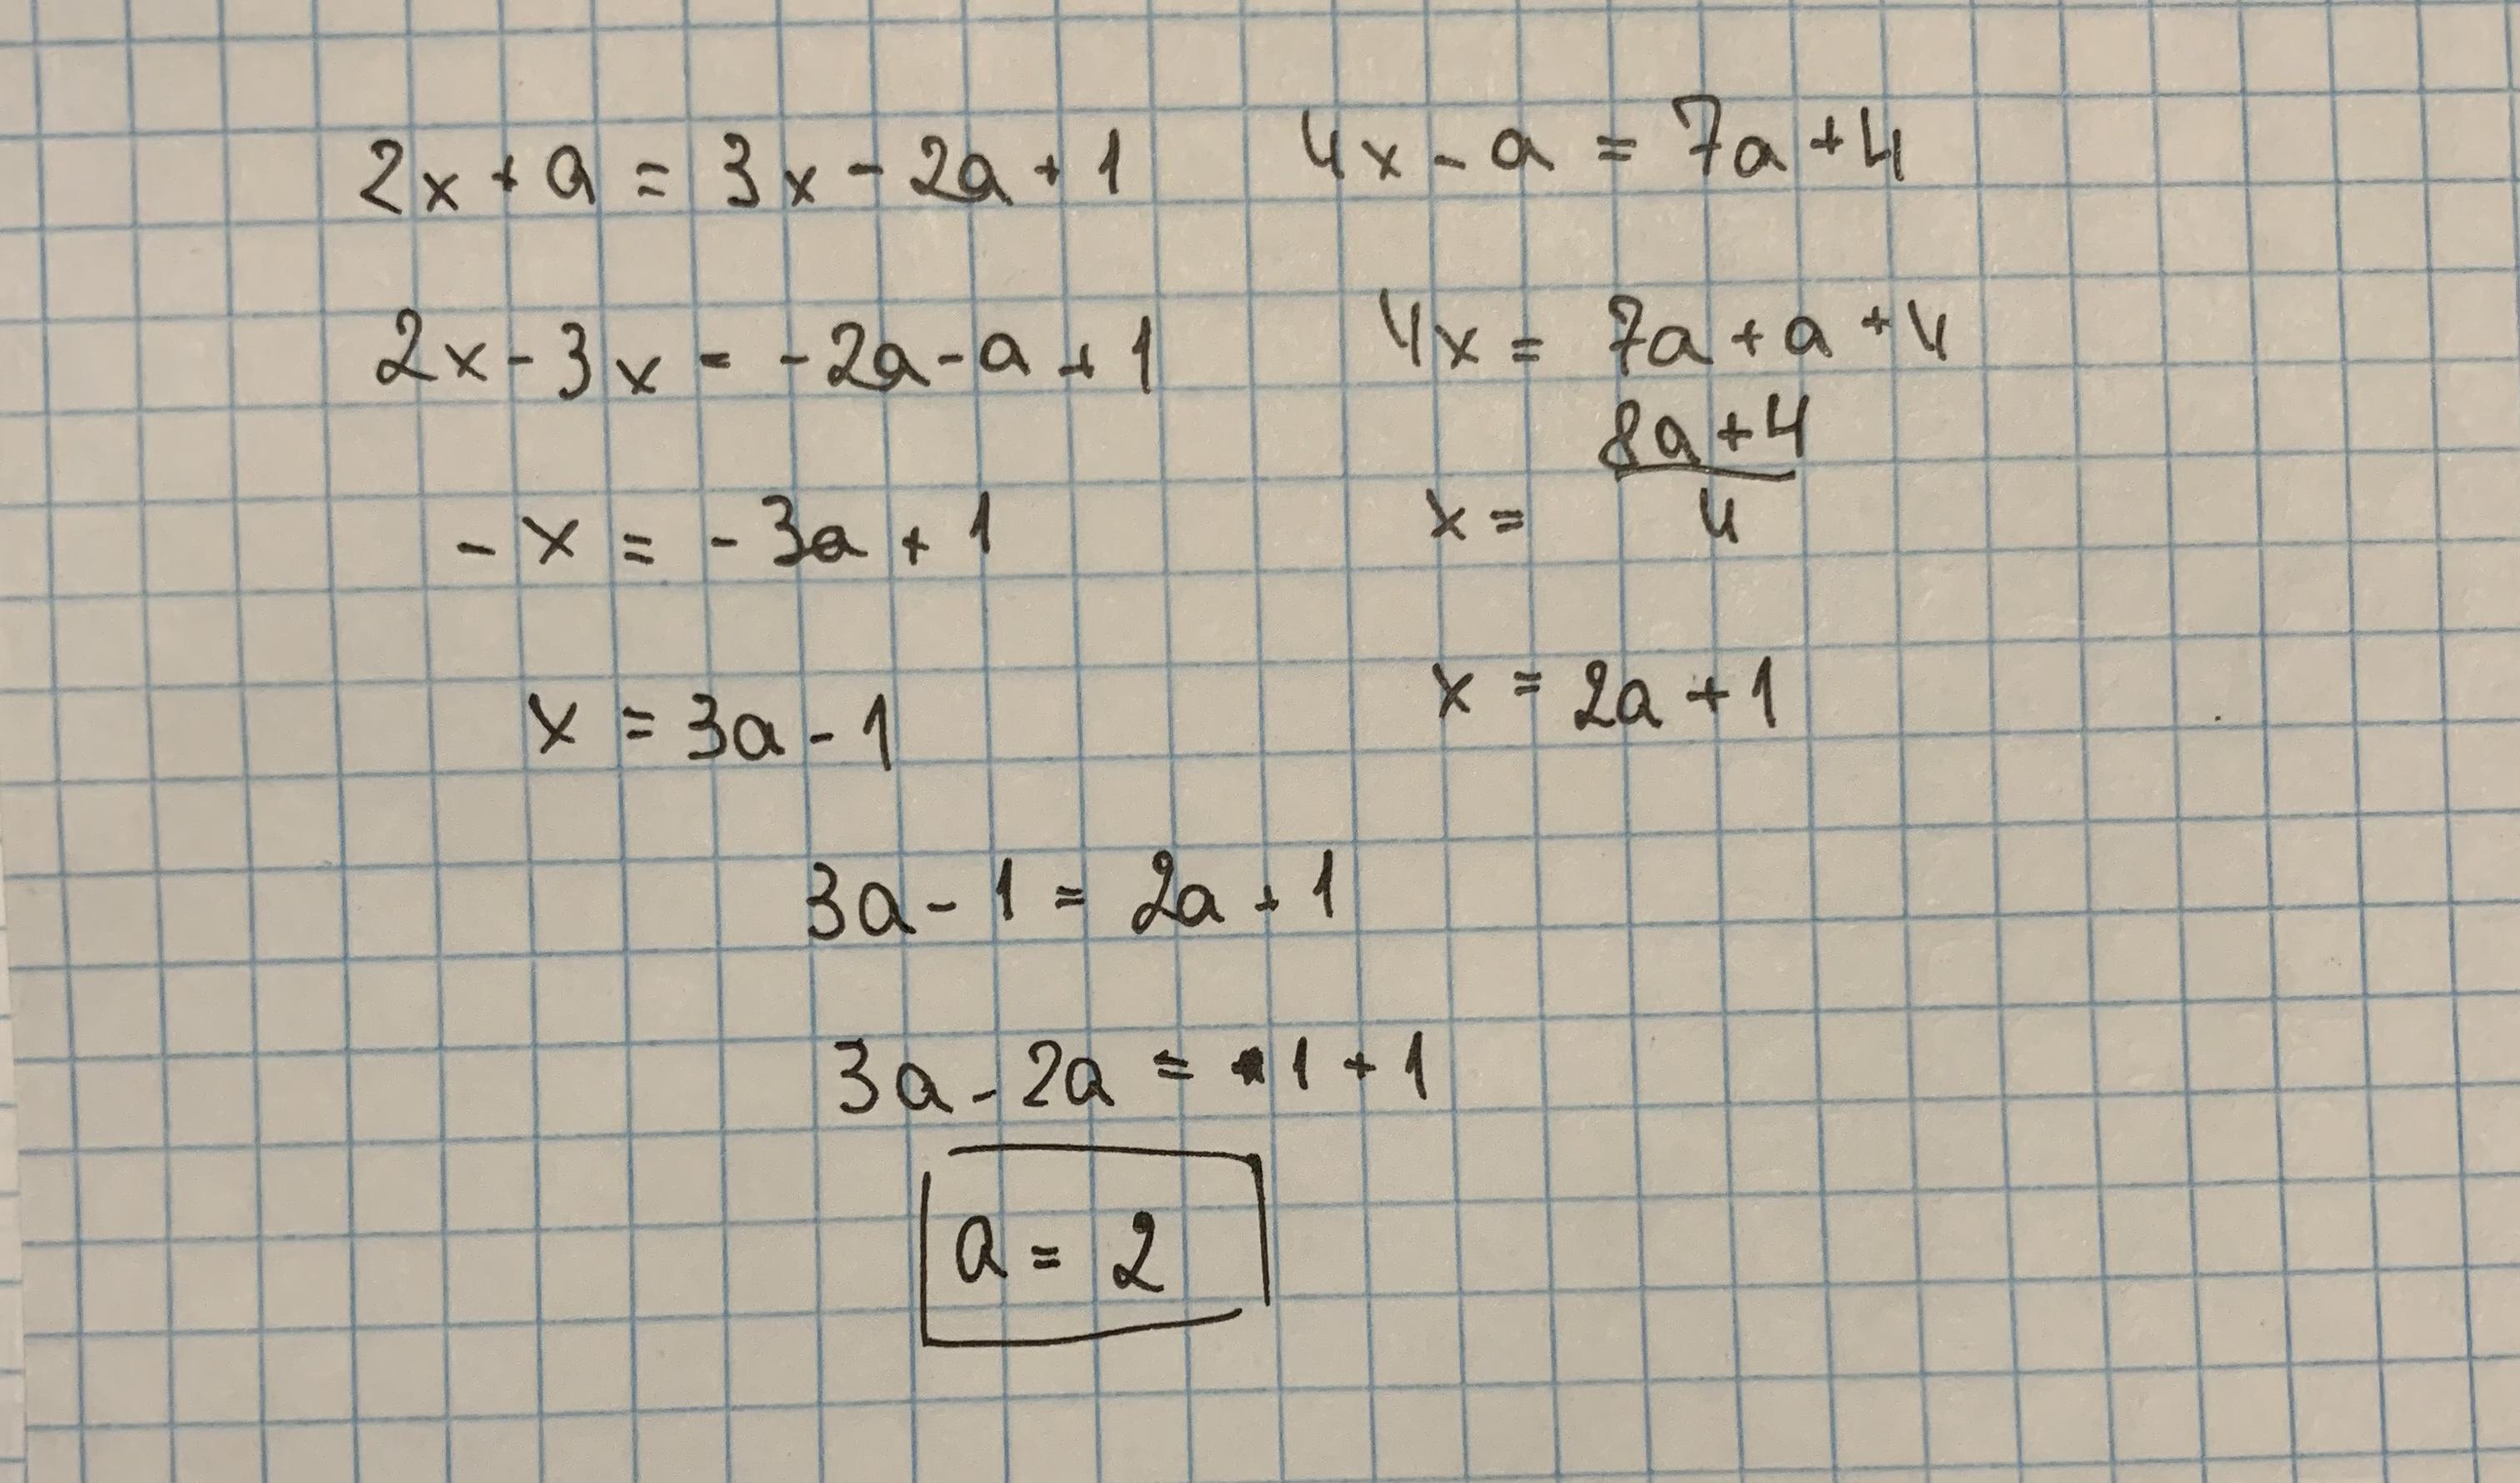 2x + a = 3x - 2a + 1
2x - 3x = -2a - a + 1
- x = - 3a + 1
x = 3a - 1
4x - a = 7a + 4
4x = 7a + a + 4
x = (8a + 4)/4
x = 2a + 1
3a - 1 = 2a + 1
3a - 2a = 1 + 1
a = 2